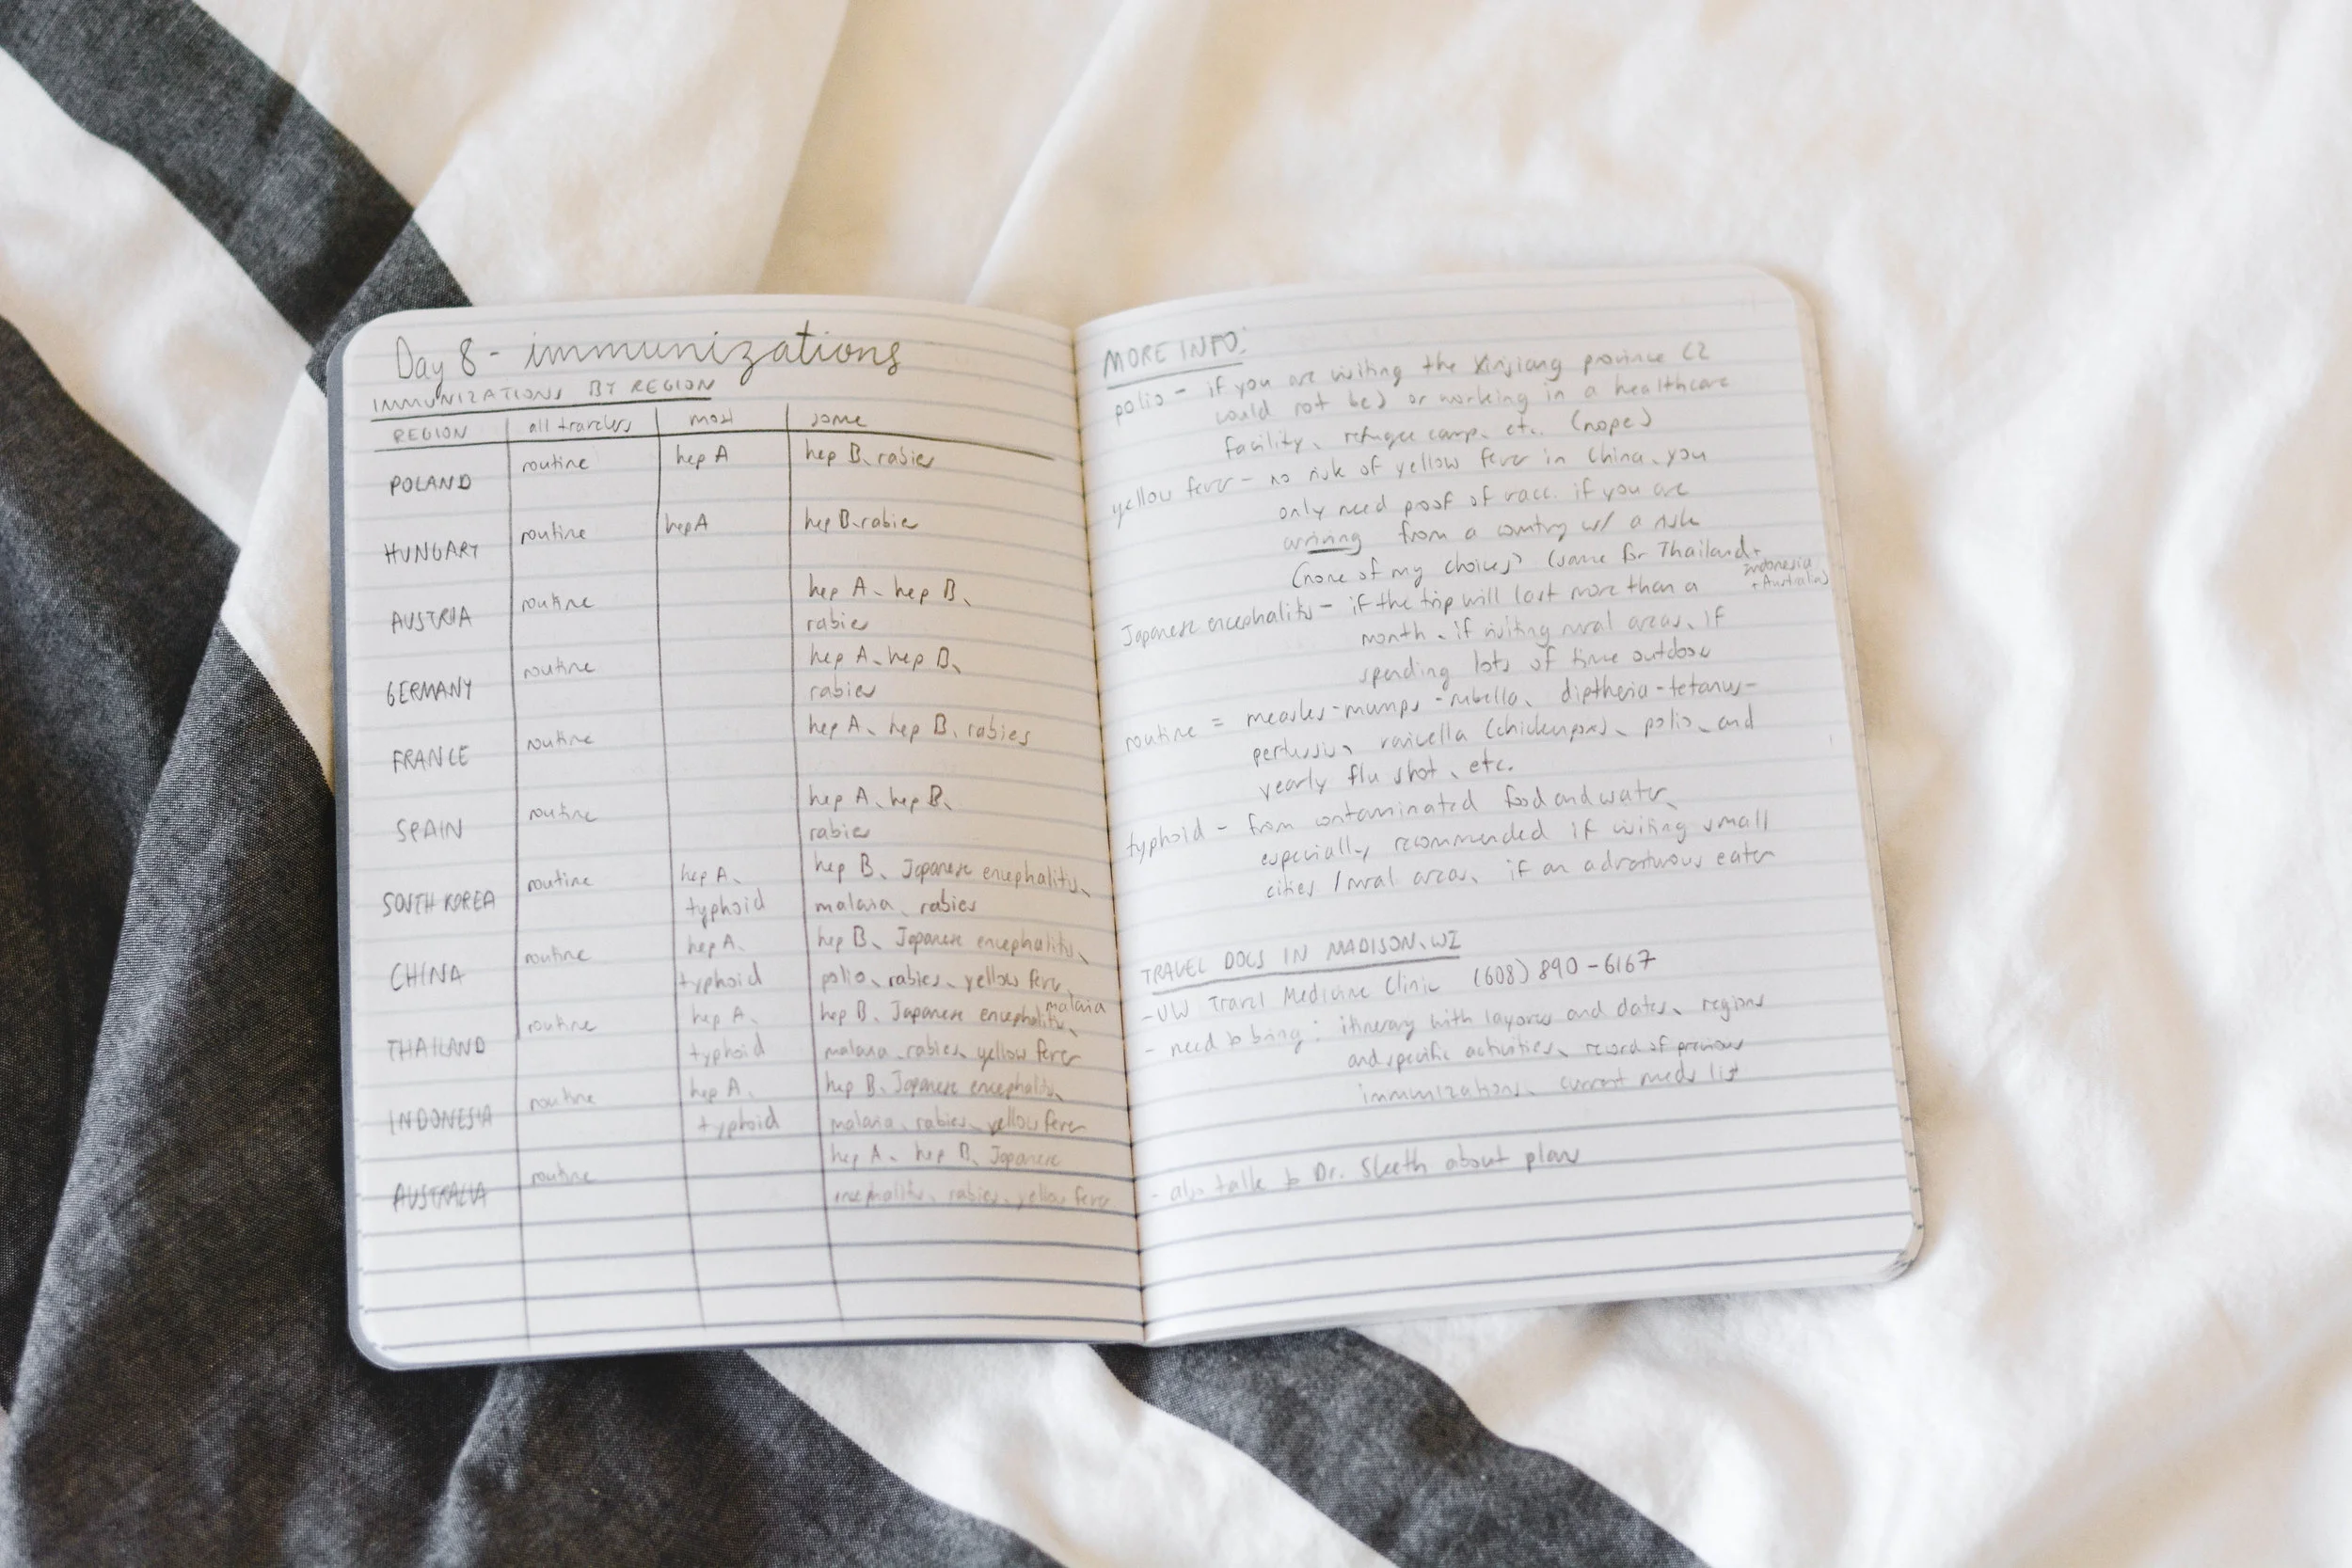 Day 8 - immunizations
IMMUNIZATIONS BY REGION
REGION all travelers most some
POLAND routine hep A hep B, rabies
HUNGARY routine hep A hep B, rabies
AUSTRIA routine hep A, hep B,
rabies
GERMANY routine hep A, hep B,
rabies
FRANCE routine hep A, hep B, rabies
SPAIN routine hep A, hep B,
rabies
SOUTH KOREA routine hep A, hep B, Japanese encephalitis,
typhoid malaria, rabies
CHINA routine hep A, hep B, Japanese encephalitis,
typhoid polio, rabies, yellow fever,
malaria
THAILAND routine hep A, hep B, Japanese encephalitis,
typhoid malaria, rabies, yellow fever
INDONESIA routine hep A, hep B, Japanese encephalitis,
typhoid malaria, rabies, yellow fever
AUSTRALIA routine hep A, hep B, Japanese
encephalitis, rabies, yellow fever
MORE INFO:
polio - if you are visiting the Xinjiang province (I
would not be) or working in a healthcare
facility, refugee camp, etc. (nope)
yellow fever - no risk of yellow fever in China, you
only need proof of vacc. if you are
arriving from a country w/ a risk
(none of my choices) (same for Thailand +
indonesia
+ Australia)
Japanese encephalitis - if the trip will last more than a
month, if visiting rural areas, if
spending lots of time outdoors
routine = measles-mumps-rubella, diptheria-tetanus-
pertussis, varicella (chickenpox), polio, and
yearly flu shot, etc.
typhoid - from contaminated food and water,
especially recommended if visiting small
cities / rural areas, if an adventurous eater
TRAVEL DOCS IN MADISON, WI
- UW Travel Medicine Clinic (608) 890-6167
- need to bring: itinerary with layovers and dates, regions
and specific activities, record of previous
immunizations, current meds list
- also talk to Dr. Sleeth about plan